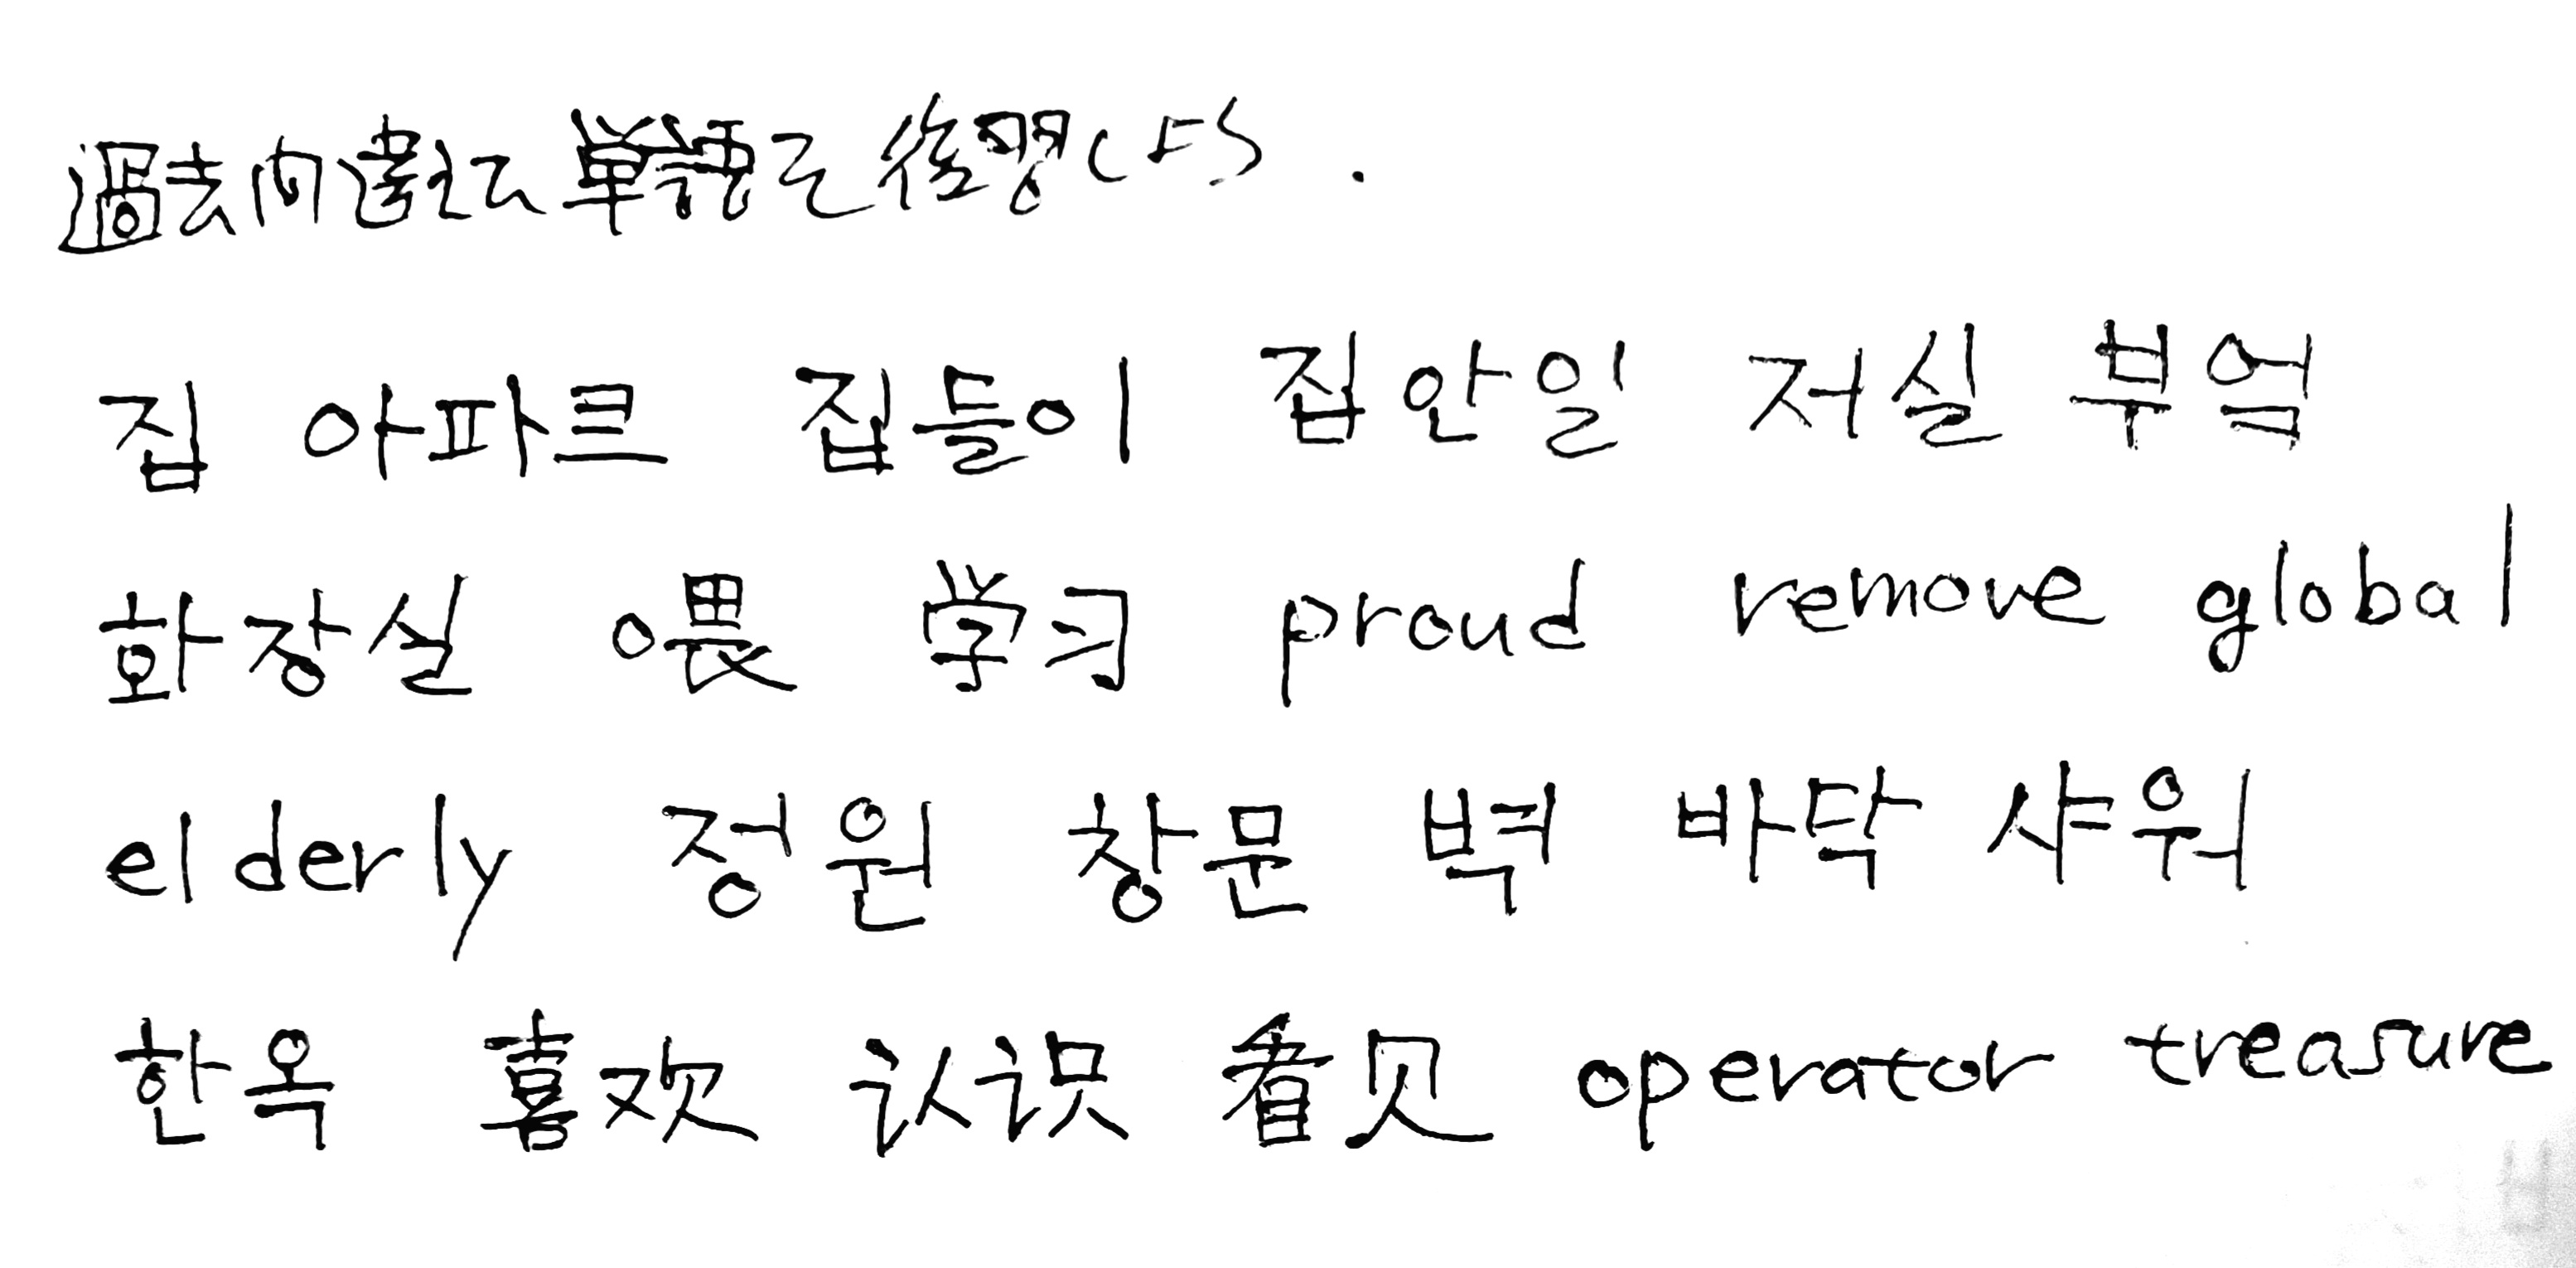 過去間違えた単語を復習しよう.
집 아파르 집들이 집안일 저실 부엄
화장실 喂 学习 proud remove global
elderly 정원 창문 벽 바닥 샤워
한옥 喜欢 认识 看见 operator treasure